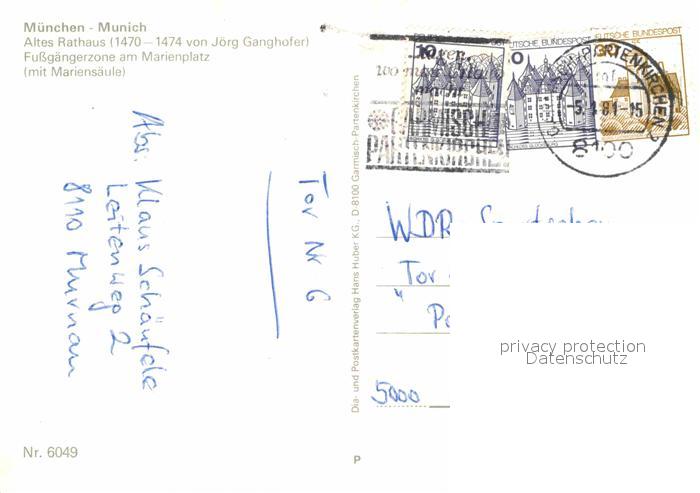 München - Munich
Altes Rathaus (1470—1474 von Jörg Ganghofer)
Fußgängerzone am Marienplatz
(mit Mariensäule)
Abs. Klaus Schäufele
Leitenweg 2
8110 Murnau
Tor Nr 6
Nr. 6049
Dia- und Postkartenverlag Hans Huber KG., D-8100 Garmisch-Partenkirchen
P
10
DEUTSCHE BUNDESPOST
DEUTSCHE BUNDESPOST
GARMISCH-
PARTENKIRCHEN
PARTENKIRCHEN
-5.4.81-15
8100
WDR
Tor
5000
privacy protection
Datenschutz